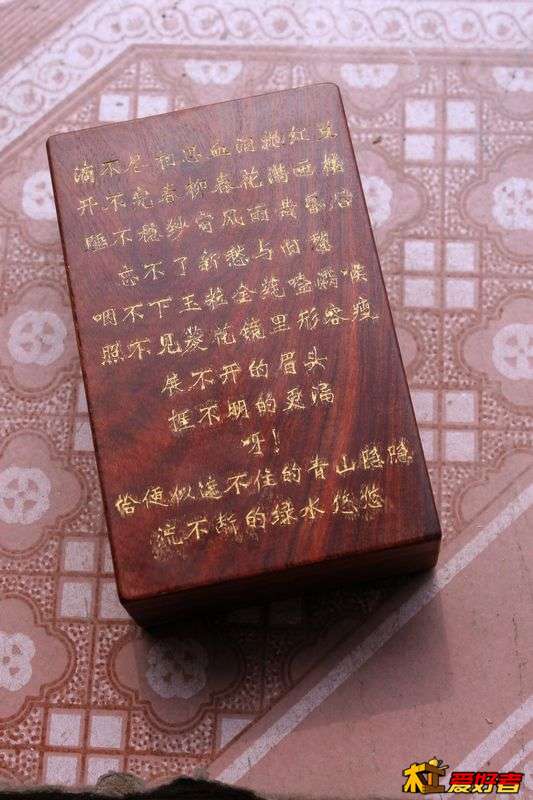 滴不尽相思血泪抛红豆
开不完春柳春花满画楼
睡不稳纱窗风雨黄昏后
忘不了新愁与旧愁
咽不下玉粒金莼噎满喉
照不见菱花镜里形容瘦
展不开的眉头
捱不明的更漏
呀！
恰便似遮不住的青山隐隐
流不断的绿水悠悠
杠爱好者